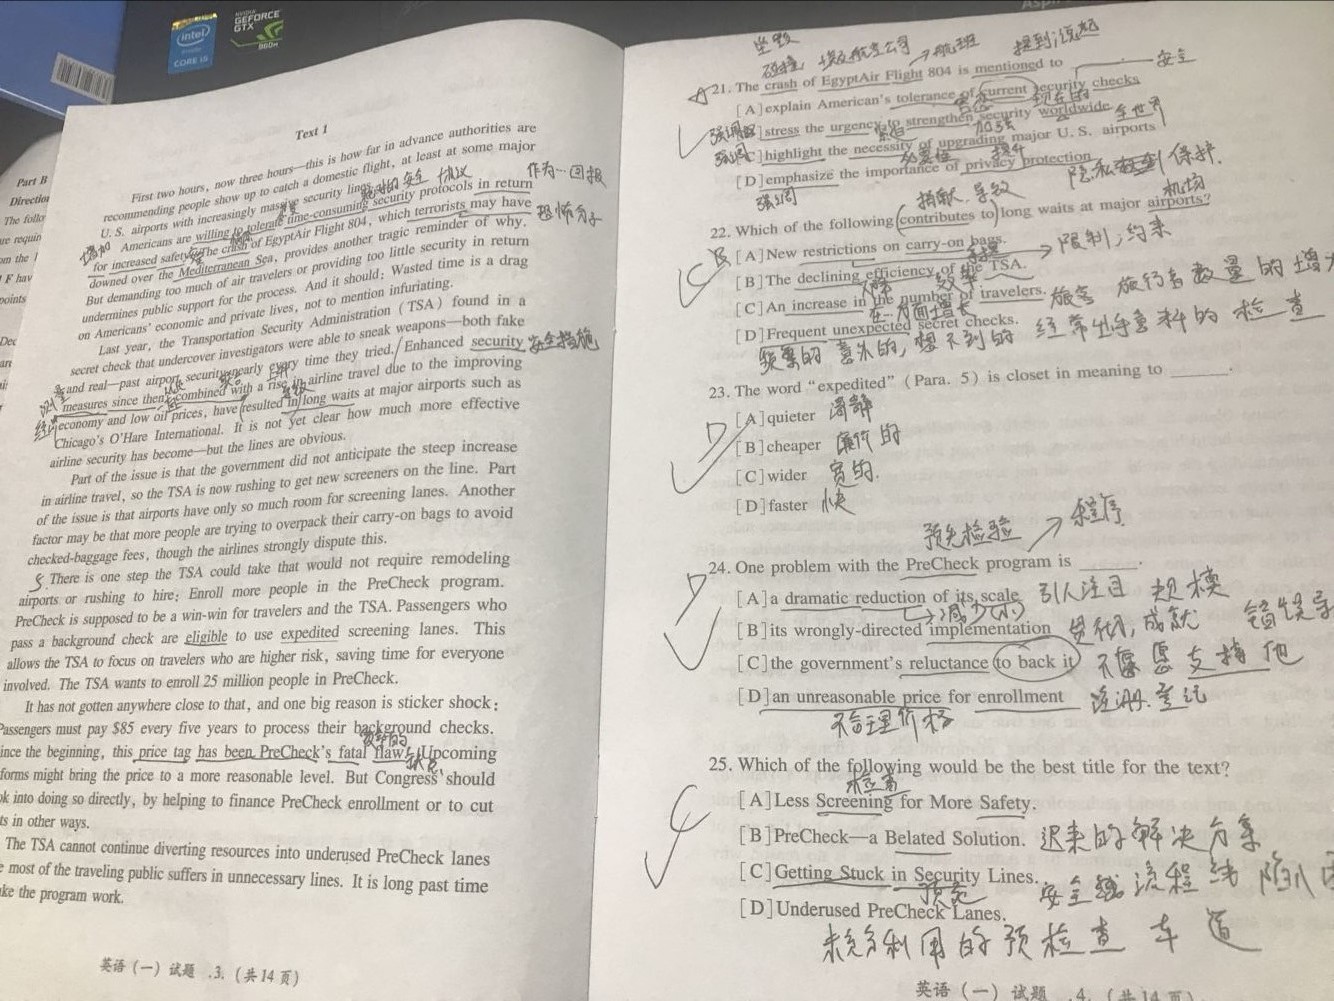 intel
CORE i5
NVIDIA
GEFORCE
GTX
860M
Part B
The follo
F hav
points
Text 1
First two hours, now three hours—this is how far in advance authorities are
recommending people show up to catch a domestic flight, at least at some major
U. S. airports with increasingly massive security lines.
作为…回报
Americans are willing to tolerate time-consuming security protocols in return
增加
for increased safety. The crash of EgyptAir Flight 804, which terrorists may have
恐怖分子
downed over the Mediterranean Sea, provides another tragic reminder of why.
But demanding too much of air travelers or providing too little security in return
undermines public support for the process. And it should: Wasted time is a drag
on Americans' economic and private lives, not to mention infuriating.
Last year, the Transportation Security Administration (TSA) found in a
secret check that undercover investigators were able to sneak weapons—both fake
and real—past airport security nearly every time they tried. Enhanced security
安全措施
measures since then, combined with a rise in airline travel due to the improving
economy and low oil prices, have resulted in long waits at major airports such as
Chicago's O'Hare International. It is not yet clear how much more effective
airline security has become—but the lines are obvious.
Part of the issue is that the government did not anticipate the steep increase
in airline travel, so the TSA is now rushing to get new screeners on the line. Part
of the issue is that airports have only so much room for screening lanes. Another
factor may be that more people are trying to overpack their carry-on bags to avoid
checked-baggage fees, though the airlines strongly dispute this.
5. There is one step the TSA could take that would not require remodeling
airports or rushing to hire: Enroll more people in the PreCheck program.
PreCheck is supposed to be a win-win for travelers and the TSA. Passengers who
pass a background check are eligible to use expedited screening lanes. This
allows the TSA to focus on travelers who are higher risk, saving time for everyone
involved. The TSA wants to enroll 25 million people in PreCheck.
It has not gotten anywhere close to that, and one big reason is sticker shock:
Passengers must pay $85 every five years to process their background checks.
ince the beginning, this price tag has been PreCheck's fatal flaw. Upcoming
forms might bring the price to a more reasonable level. But Congress should
ok into doing so directly, by helping to finance PreCheck enrollment or to cut
ts in other ways.
The TSA cannot continue diverting resources into underused PreCheck lanes
e most of the traveling public suffers in unnecessary lines. It is long past time
ake the program work.
英语(一)试题 .3. (共14页)
坠毁
埃及航空公司 → 航班 提到;说起
21. The crash of EgyptAir Flight 804 is mentioned to ______.
安全
[A]explain American's tolerance of current security checks
现在的
[B]stress the urgency to strengthen security worldwide
强调 紧迫 加强 全世界
[C]highlight the necessity of upgrading major U. S. airports
强调 必要性 提升
[D]emphasize the importance of privacy protection
强调 隐私 保护.
贡献.导致 机场
22. Which of the following contributes to long waits at major airports?
B
C
[A]New restrictions on carry-on bags. → 限制;约束
[B]The declining efficiency of the TSA.
下降 效率
[C]An increase in the number of travelers. 旅客 旅行者数量的增大
在…方面增长
[D]Frequent unexpected secret checks.
频繁的 意外的,想不到的 经常出乎意料的检查
23. The word “expedited” (Para. 5) is closet in meaning to ______.
D
[A]quieter
[B]cheaper 廉价的
[C]wider 宽的.
[D]faster 快
预先检验 → 程序
24. One problem with the PreCheck program is ______.
D
[A]a dramatic reduction of its scale 引人注目 规模
→ 减少(小)
[B]its wrongly-directed implementation 贯彻,成就 错误导
[C]the government's reluctance to back it 不愿意支持他
[D]an unreasonable price for enrollment 注册.登记
不合理价格
25. Which of the following would be the best title for the text?
检查
C
[A]Less Screening for More Safety.
[B]PreCheck—a Belated Solution. 迟来的解决方案
[C]Getting Stuck in Security Lines.
安全 流程线 陷入
[D]Underused PreCheck Lanes.
未充分利用的预检查车道
英语(一)试题 .4. (共14页)